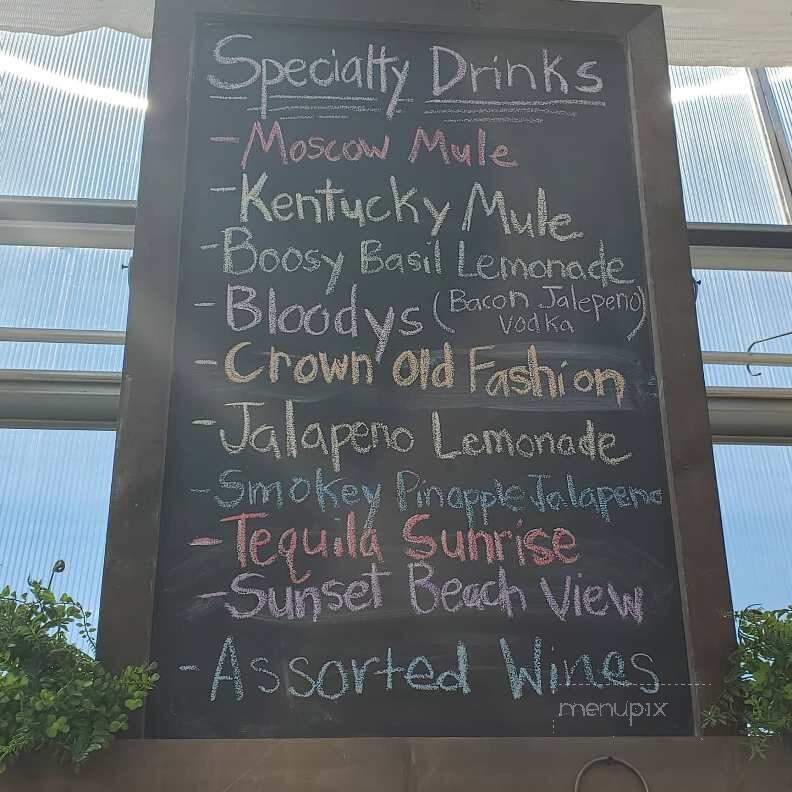 Specialty Drinks
- Moscow Mule
- Kentucky Mule
- Boosy Basil Lemonade
- Bloodys (Bacon Jalepeno)
Vodka
- Crown Old Fashion
- Jalapeno Lemonade
- Smokey Pinapple Jalapeno
- Tequila Sunrise
- Sunset Beach View
- Assorted Wines
menupix